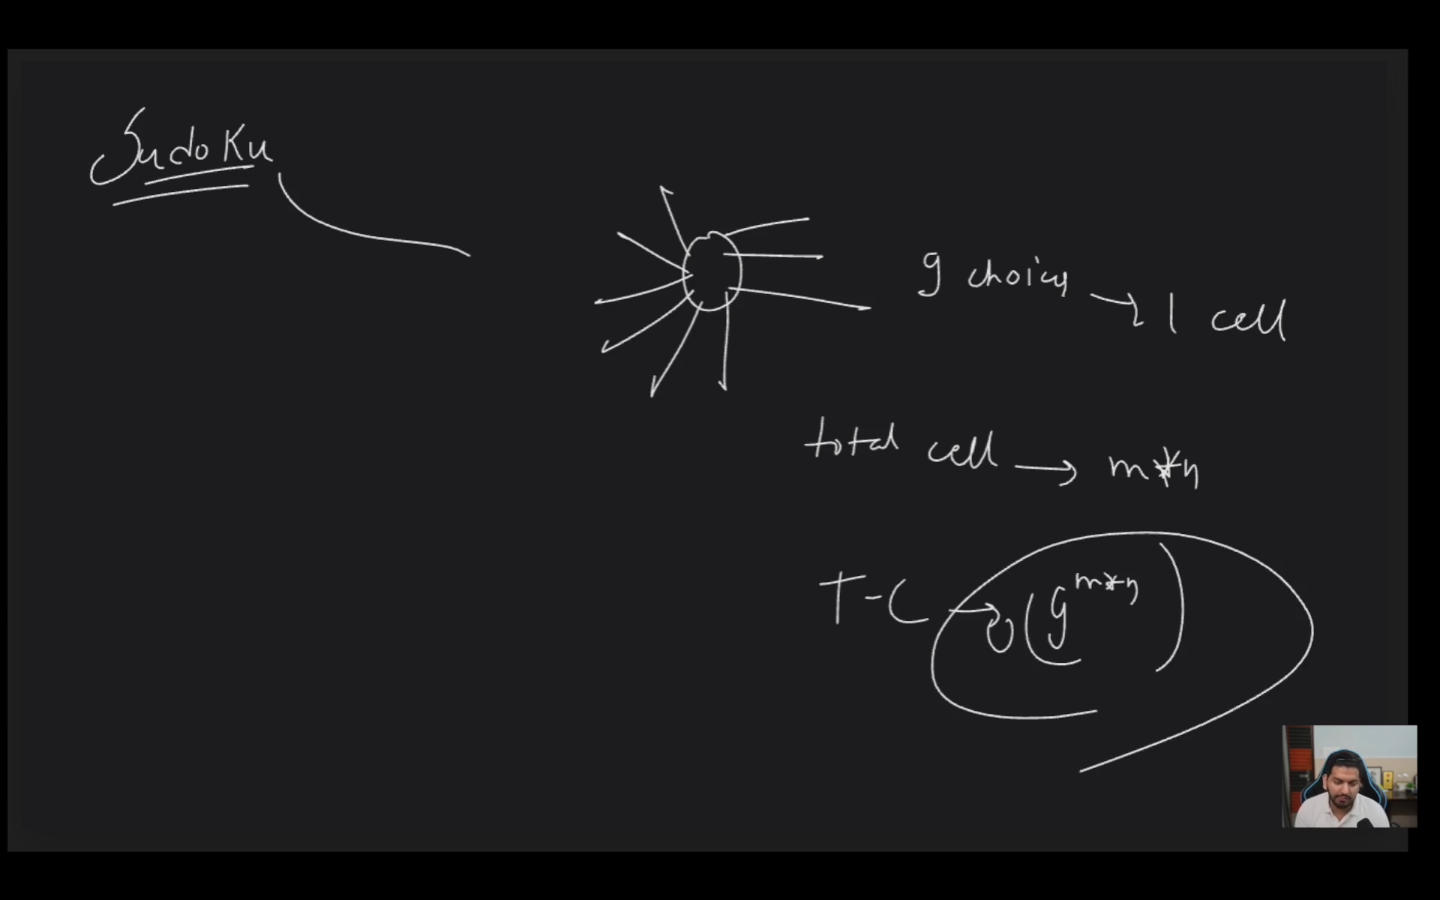 Sudoku
9 choices → 1 cell
total cell → m*n
T-C → O(9^m*n)